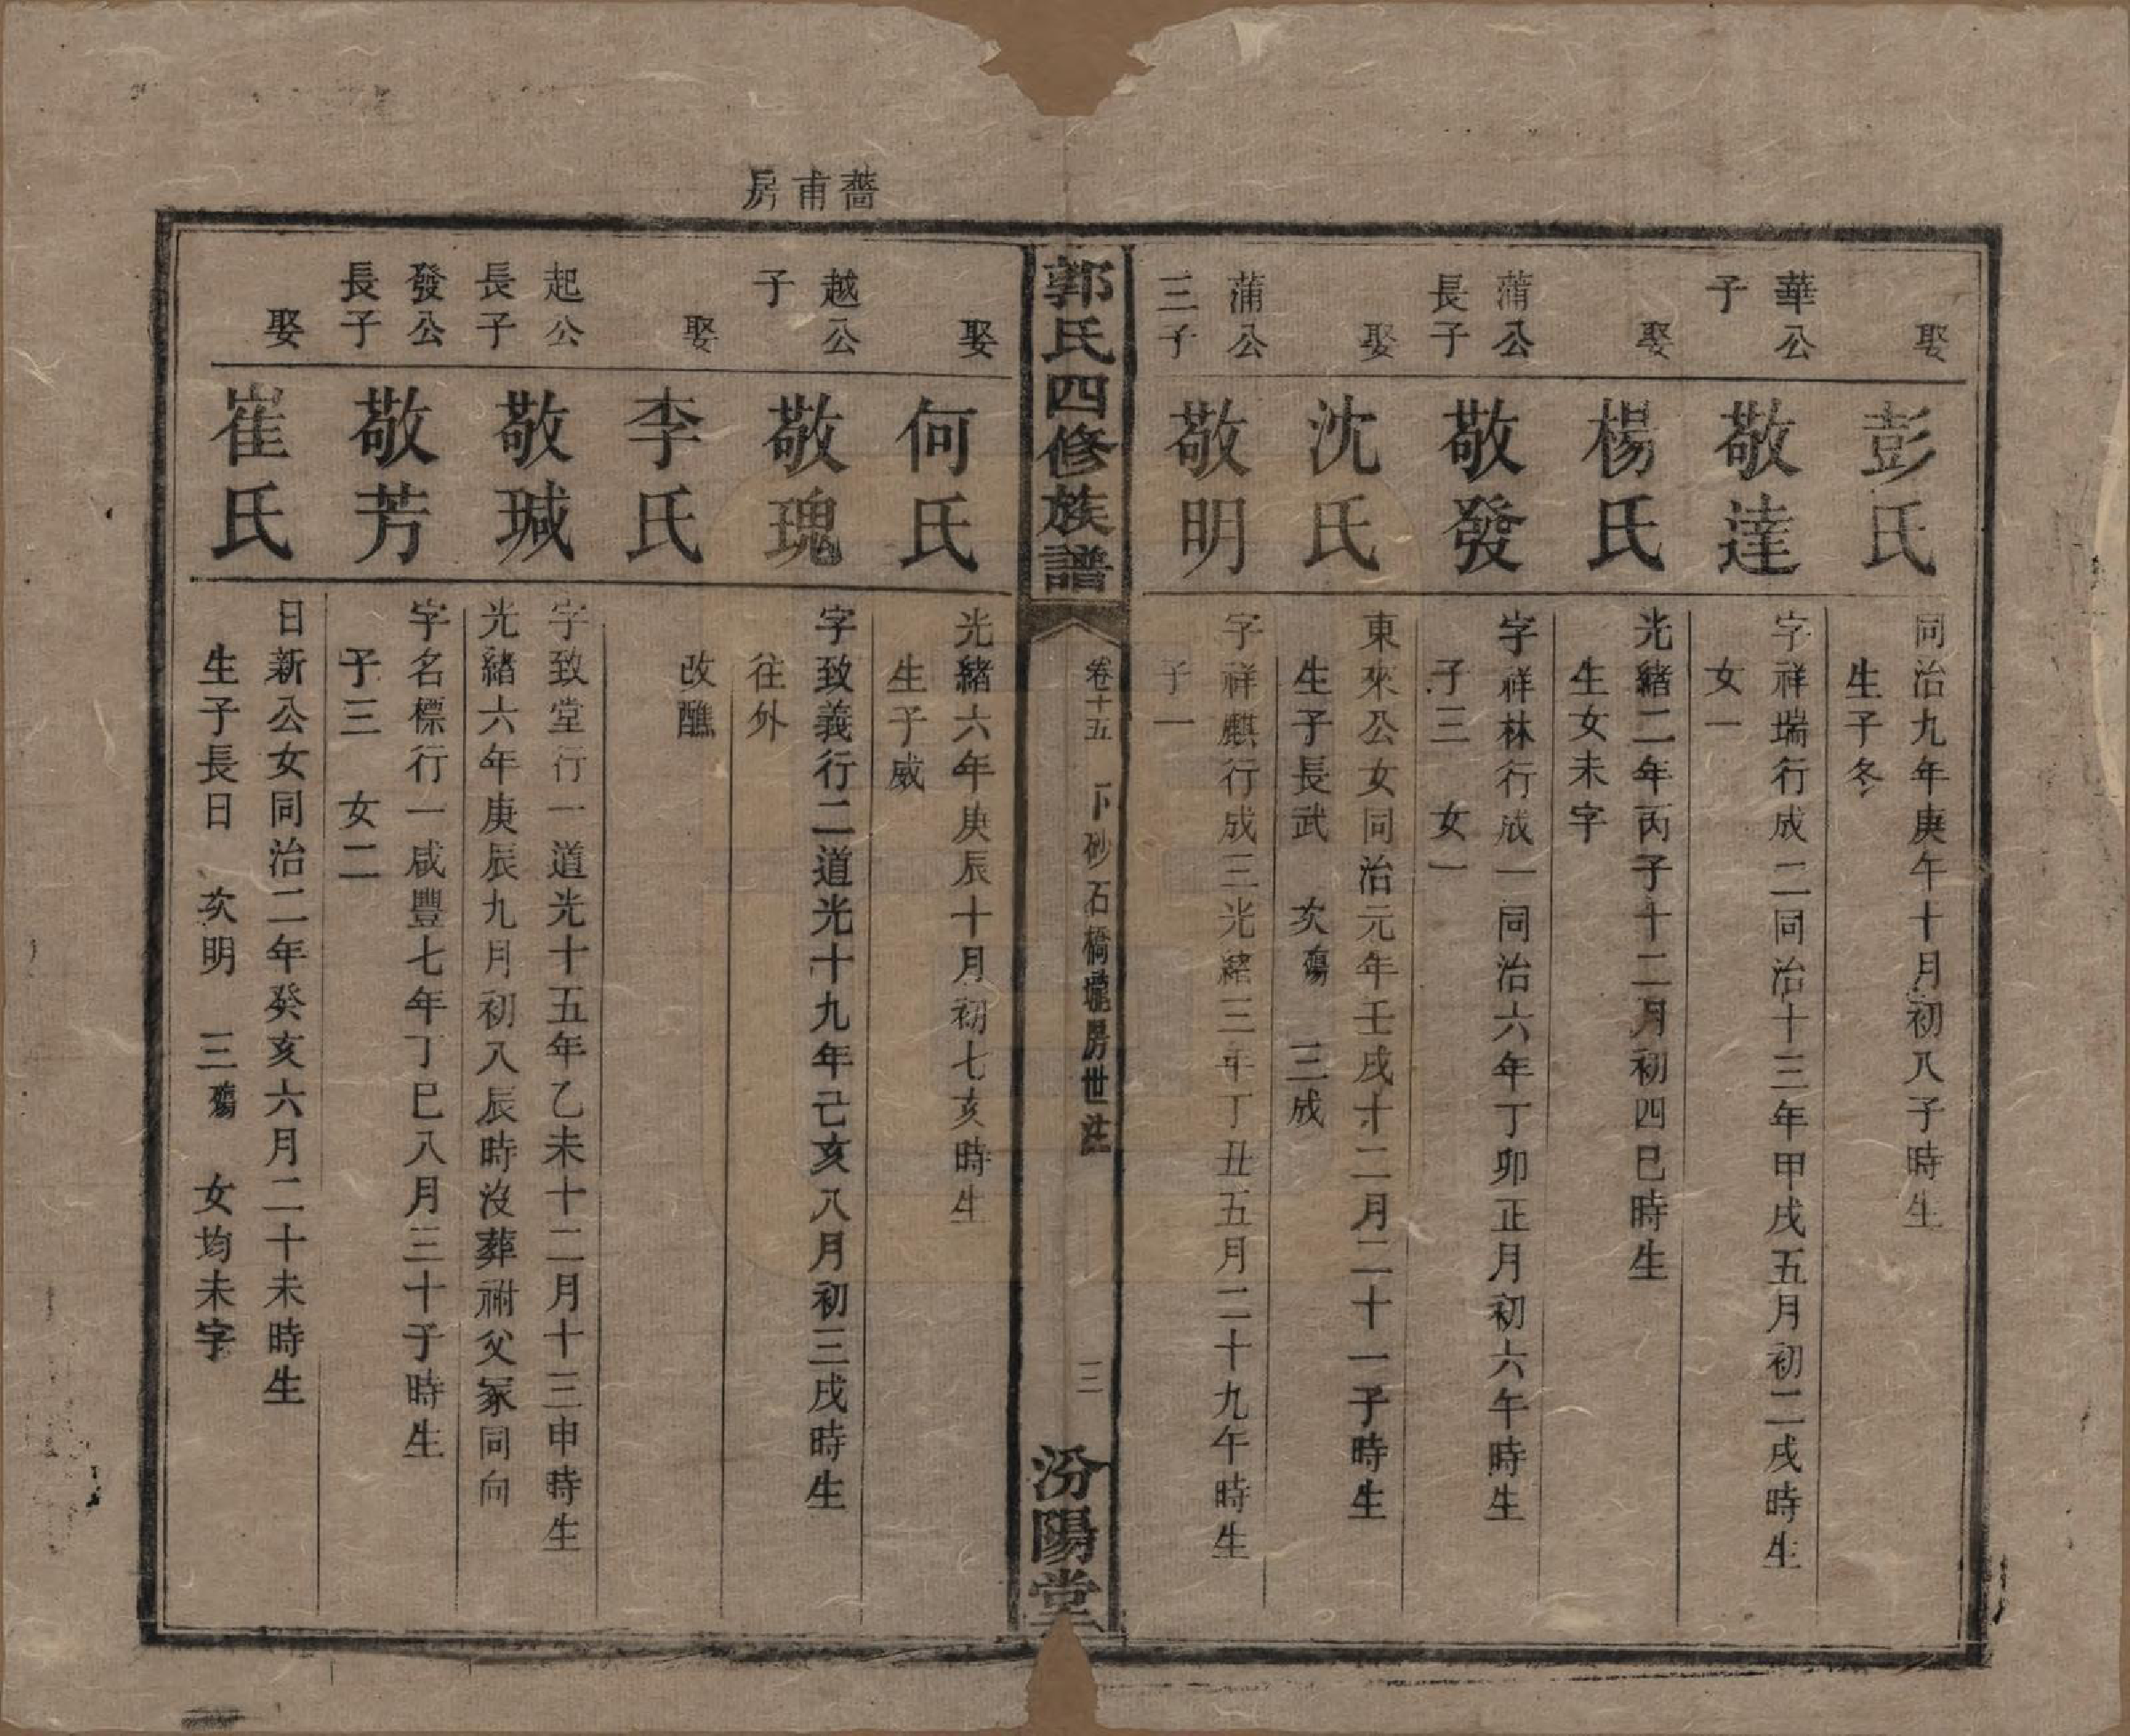 娶
彭氏
同治九年庚午十月初八子時生
生子冬
華公
子
敬達
字祥瑞行成二同治十三年甲戌五月初二戌時生
女一
娶
楊氏
光緒二年丙子十二月初四巳時生
生女未字
蒲公
長子
敬發
字祥林行成一同治六年丁卯正月初六午時生
子三 女一
娶
沈氏
東來公女同治元年壬戌十二月二十一子時生
生子長武 次殤 三成
蒲公
三子
敬明
字祥麒行成三光緒三年丁丑五月二十九午時生
子一
郭氏四修族譜
卷十五 下砂石橋壠房世注
三
汾陽堂
娶
何氏
光緒六年庚辰十月初七亥時生
生子威
薔甫房
越公
子
敬瑰
字致義行二道光十九年己亥八月初三戌時生
往外
娶
李氏
改醮
起公
長子
敬瑊
字致堂行一道光十五年乙未十二月十三申時生
光緒六年庚辰九月初八辰時沒葬祔父冢同向
發公
長子
敬芳
字名標行一咸豐七年丁巳八月三十子時生
子三 女二
娶
崔氏
日新公女同治二年癸亥六月二十未時生
生子長日 次明 三殤 女均未字